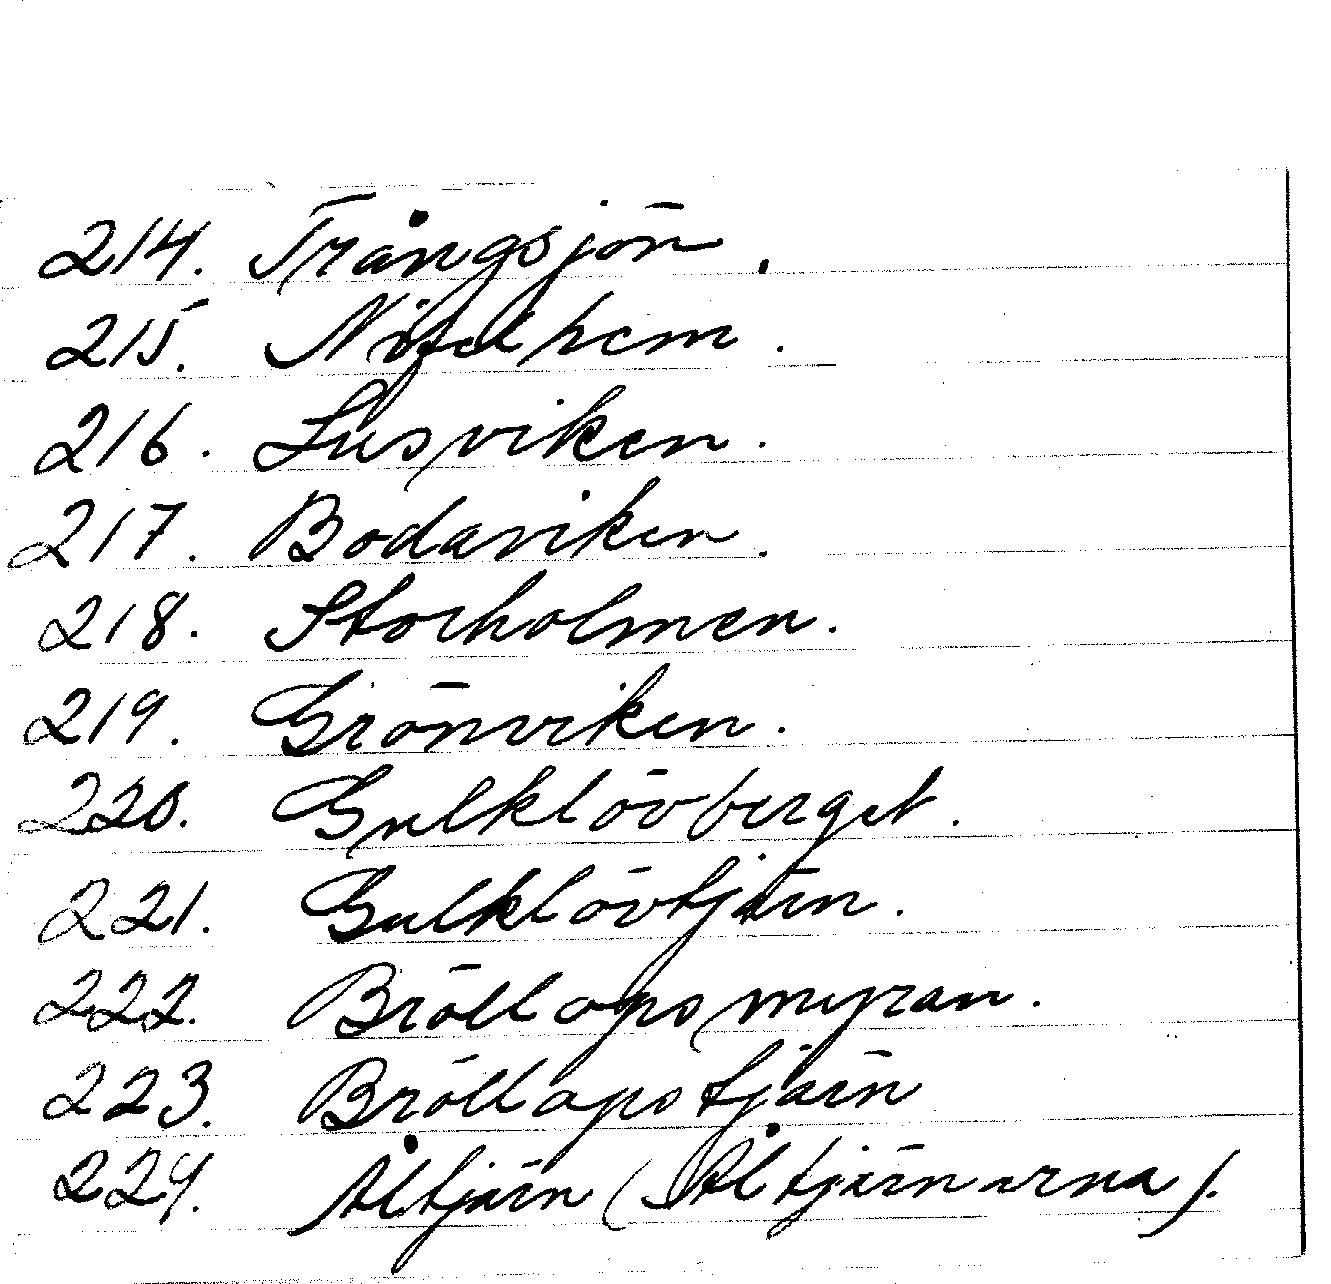 214. Trångsjön.
215. Nifelhem.
216. Lusviken.
217. Bodaviken.
218. Storholmen.
219. Grönviken.
220. Gulklövberget.
221. Gulklövtjärn.
222. Bröllopsmyran.
223. Bröllopstjärn
224. Åltjärn (Åltjärnarna).